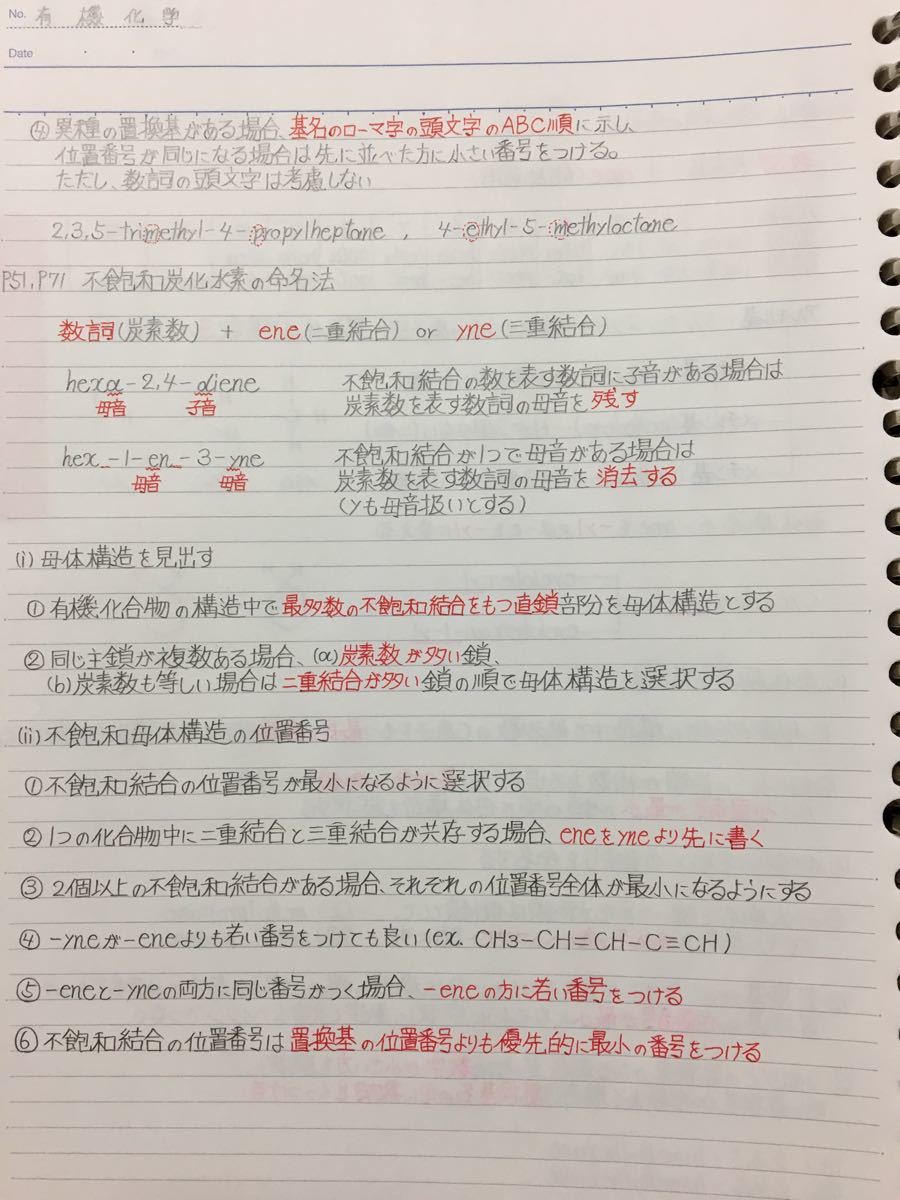 No. 有機化学
Date
④ 異種の置換基がある場合、基名のローマ字の頭文字のABC順に示し、
位置番号が同じになる場合は先に並べた方に小さい番号をつける。
ただし、数詞の頭文字は考慮しない
2,3,5-trimethyl-4-propylheptane , 4-ethyl-5-methyloctane
P51,P71 不飽和炭化水素の命名法
数詞(炭素数) + ene(二重結合) or yne(三重結合)
hexa-2,4-diene 不飽和結合の数を表す数詞に子音がある場合は
母音 子音 炭素数を表す数詞の母音を残す
hex-1-en-3-yne 不飽和結合が1つで母音がある場合は
母音 母音 炭素数を表す数詞の母音を消去する
(yも母音扱いとする)
(i) 母体構造を見出す
① 有機化合物の構造中で最多数の不飽和結合をもつ直鎖部分を母体構造とする
② 同じ主鎖が複数ある場合、(a)炭素数が多い鎖、
(b)炭素数も等しい場合は二重結合が多い鎖の順で母体構造を選択する
(ii) 不飽和母体構造の位置番号
① 不飽和結合の位置番号が最小になるように選択する
② 1つの化合物中に二重結合と三重結合が共存する場合、eneをyneより先に書く
③ 2個以上の不飽和結合がある場合、それぞれの位置番号全体が最小になるようにする
④ -yneが-eneよりも若い番号をつけても良い(ex. CH3-CH=CH-C≡CH)
⑤ -eneと-yneの両方に同じ番号がつく場合、-eneの方に若い番号をつける
⑥ 不飽和結合の位置番号は置換基の位置番号よりも優先的に最小の番号をつける